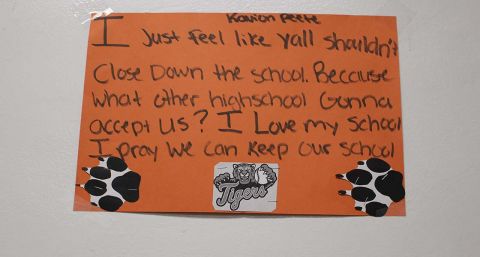 Kavion Peete
I Just feel like yall shouldn't
Close Down the school. Beccause
what other highschool Gonna
accept us? I Love my school
I pray we can keep our school
Tigers